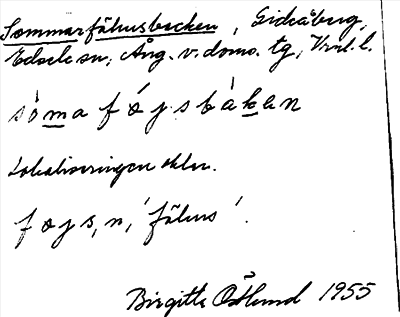 Sommarfähusbacken, Gideåberg,
Edsele sn, Ång. v. doms. tg, Vnl. l.
sòma fǿjsbàkan
Lokaliseringen oklar.
føjs, n, 'fähus'.
Birgitta Östlund 1955